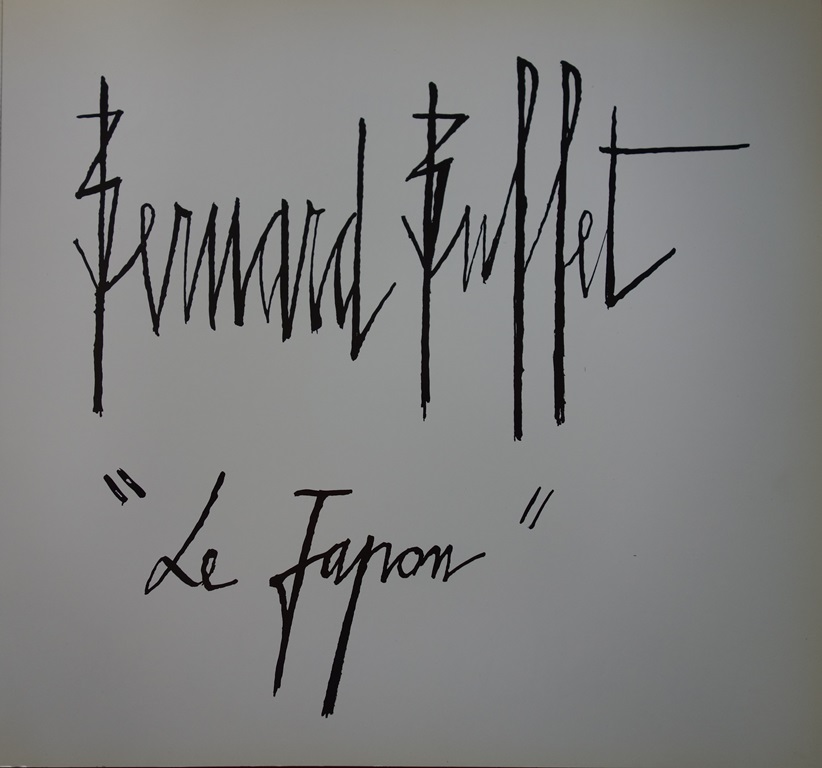 Bernard Buffet
" Le Japon "